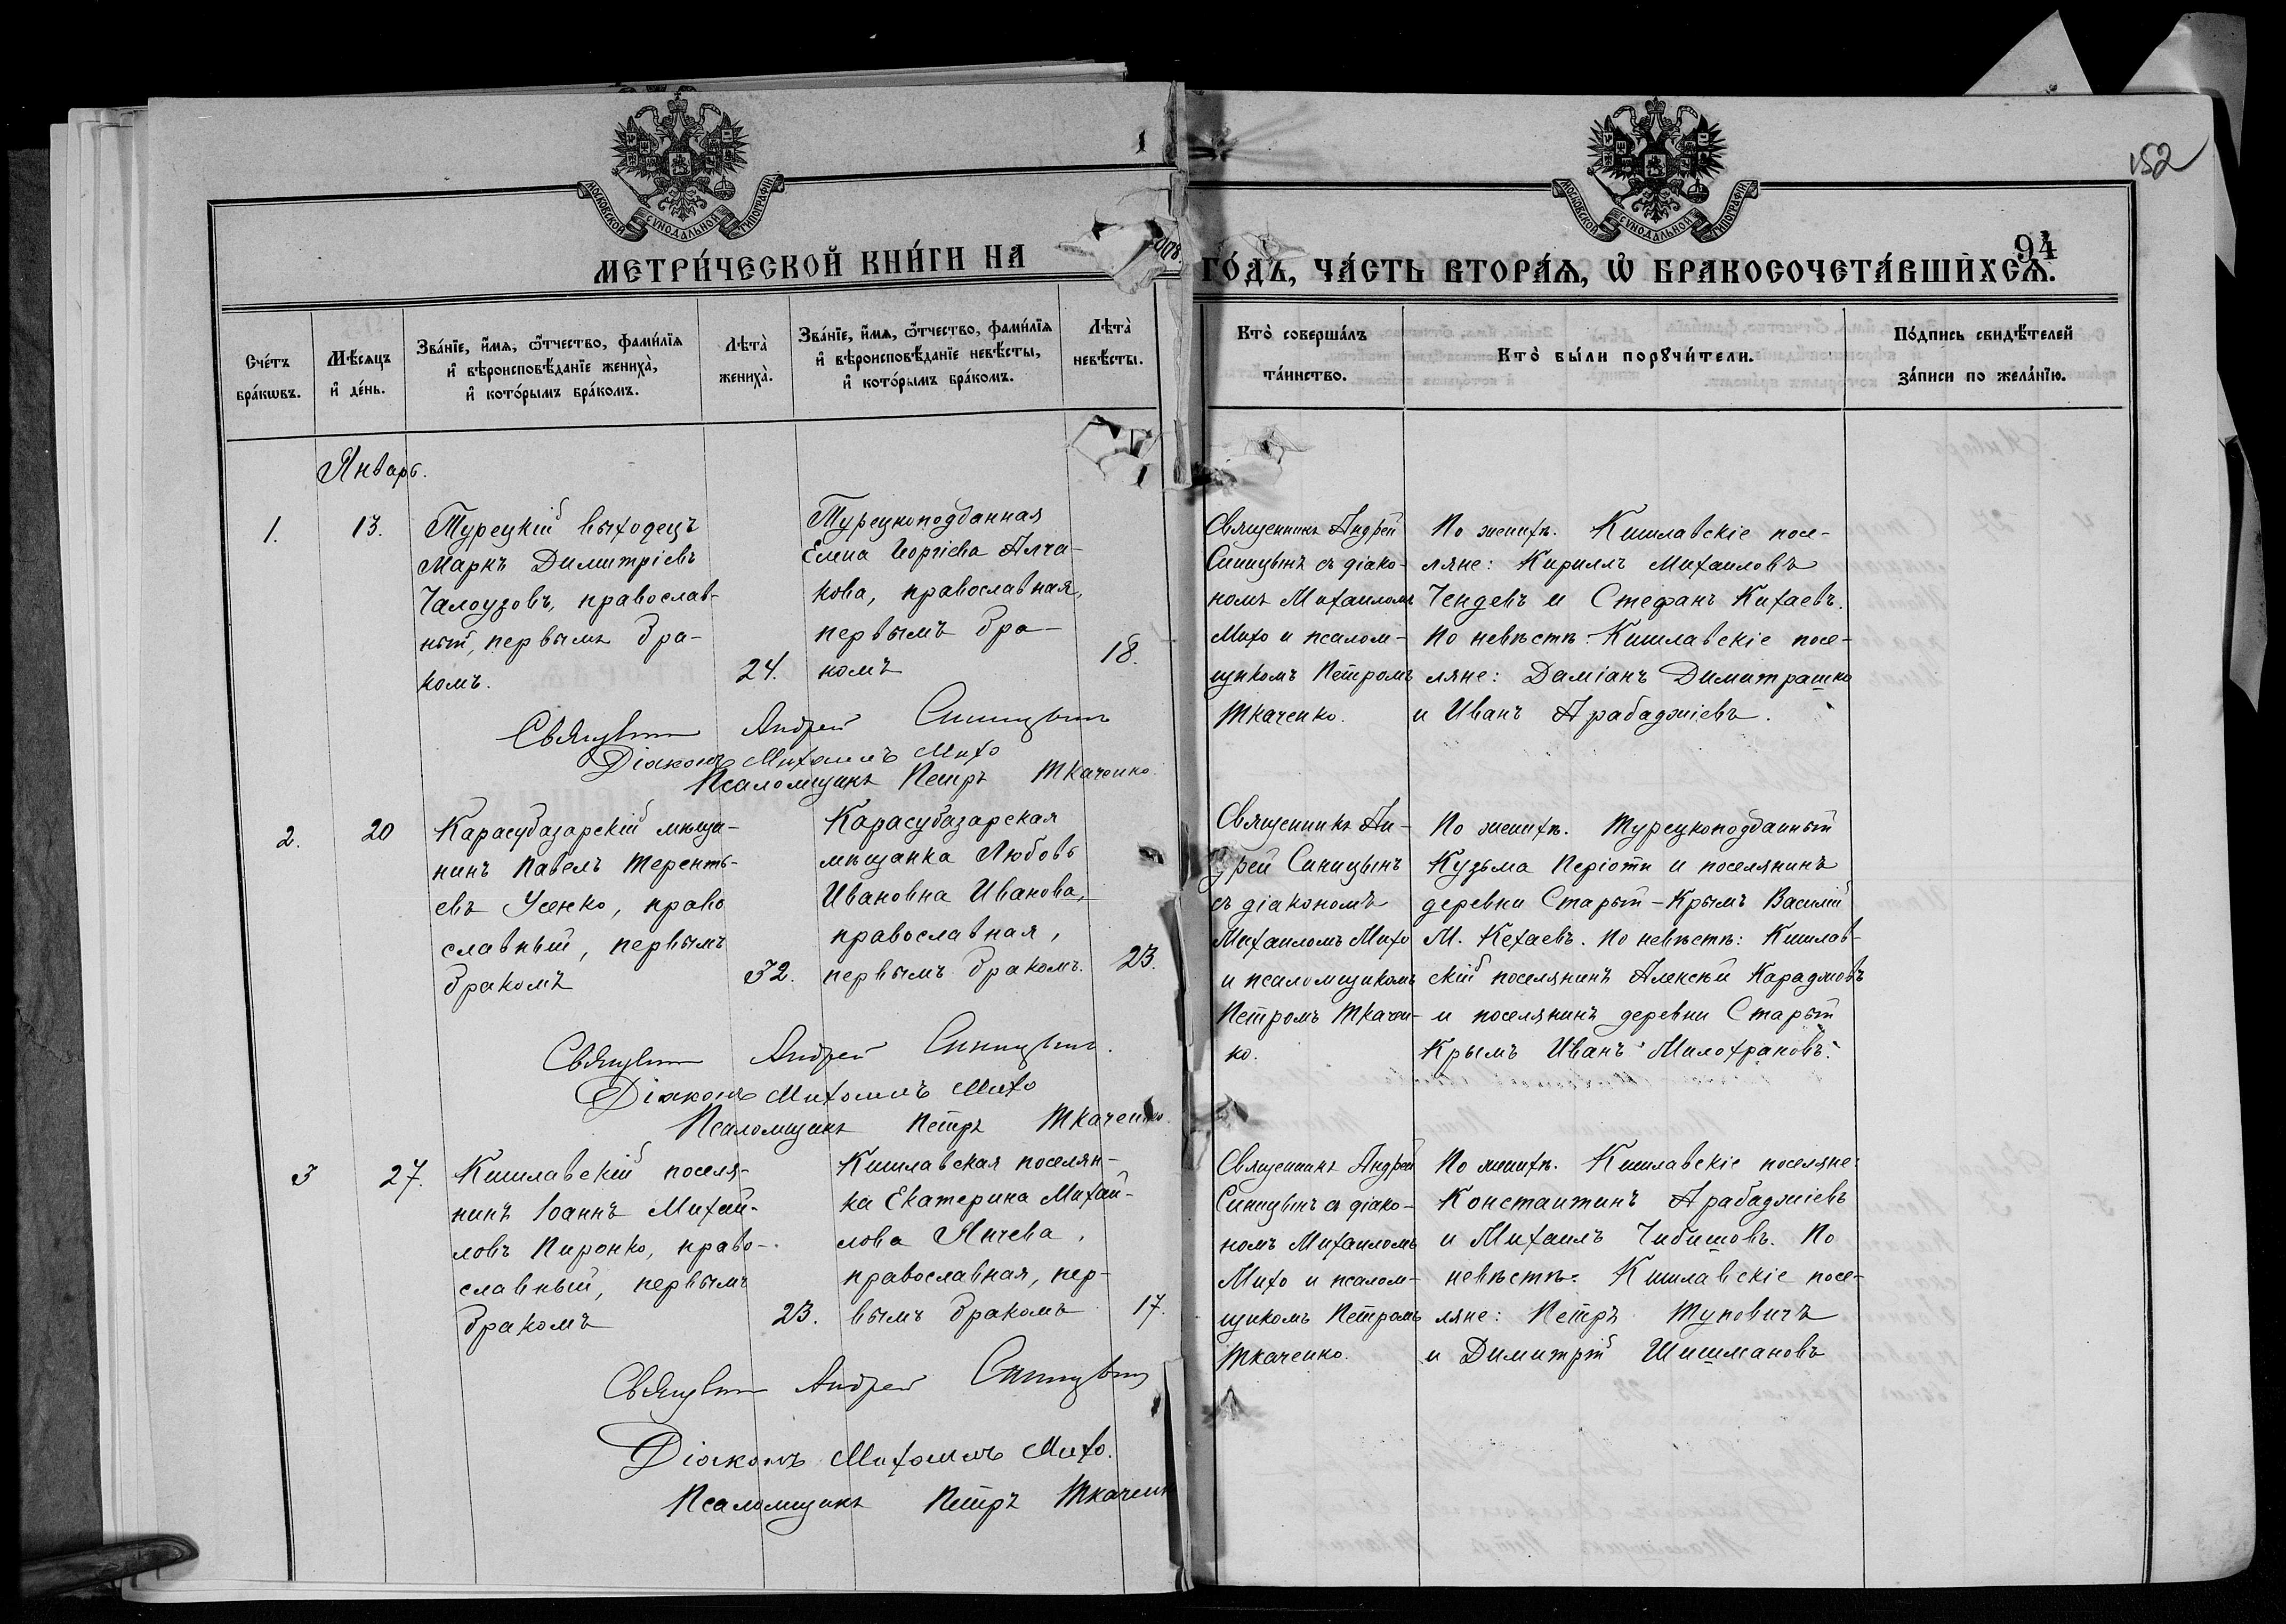 152
94
МОСКОВСКОЙ СѴНОДАЛЬНОЙ ТИПОГРАФІИ
МОСКОВСКОЙ СѴНОДАЛЬНОЙ ТИПОГРАФІИ
МЕТРИ́ЧЕСКОЙ КНИ́ГИ НА
ГО́ДЪ, ЧА́СТЬ ВТОРА́Ѧ, Ѡ҆ БРАКОСОЧЕТА́ВШИХСѦ.
Сче́тъ бра́кѡвъ.
Мѣ́сѧцъ и҆ де́нь.
Зва́нїе, и҆́мѧ, ѻ҆́тчество, фамѝлїѧ и҆ вѣроисповѣ́данїе жениха̀, и҆ кото́рымъ бра́комъ.
Лѣта̀ жениха̀.
Зва́нїе, и҆́мѧ, ѻ҆́тчество, фами́лїѧ и҆ вѣроисповѣ́данїе невѣ́сты, и҆ кото́рымъ бра́комъ.
Лѣта̀ невѣ́сты.
Кто̀ соверша́лъ та́инство.
Кто̀ бы́ли порꙋчи́тели.
По́дпись свидѣ́телей за́писи по жела́нїю.
Январь.
1.
13.
Турецкій выходецъ
Маркъ Димитріевъ
Чалоузовъ, православ-
ный, первымъ бра-
комъ.
24.
Турецкоподданная
Елена Іоргіева Алча-
кова, православная,
первымъ бра-
комъ
18.
Священникъ Андрей
Синицынъ съ діако-
номъ Михаиломъ
Михо и псалом-
щикомъ Петромъ
Ткаченко.
По женихѣ. Кишлавскіе посе-
ляне: Кириллъ Михаиловъ
Чендевъ и Стефанъ Кихаевъ.
По невѣстѣ: Кишлавскіе посе-
ляне: Даміанъ Димитрашко
и Иванъ Арабаджіевъ.
Священникъ Андрей Синицынъ
Діаконъ Михаилъ Михо
Псаломщикъ Петръ Ткаченко.
2.
20
Карасубазарскій мѣща-
нинъ Павелъ Теренть-
евъ Усенко, право
славный, первымъ
бракомъ
32.
Карасубазарская
мѣщанка Любовь
Ивановна Иванова,
православная,
первымъ бракомъ.
23.
Священникъ Ан-
дрей Синицынъ
съ діакономъ
Михаиломъ Михо
и псаломщикомъ
Петромъ Ткачен-
ко.
По женихѣ. Турецкоподданный
Кузьма Періоти и поселянинъ
деревни Старый-Крымъ Василій
М. Кехаевъ. По невѣстѣ: Кишлав-
скій поселянинъ Алексѣй Караджовъ
и поселянинъ деревни Старый
Крымъ Иванъ Милохрановъ.
Священникъ Андрей Синицынъ.
Діаконъ Михаилъ Михо
Псаломщикъ Петръ Ткаченко.
3
27.
Кишлавскій поселя-
нинъ Іоаннъ Михай-
ловъ Пиронко, право-
славный, первымъ
бракомъ
23.
Кишлавская поселян-
ка Екатерина Михай-
лова Янчева,
православная, пер-
вымъ бракомъ
17.
Священникъ Андрей
Синицынъ съ діако-
номъ Михаиломъ
Михо и псалом-
щикомъ Петромъ
Ткаченко.
По женихѣ. Кишлавскіе поселяне:
Константинъ Арабаджіевъ
и Михаилъ Чибишовъ. По
невѣстѣ: Кишлавскіе посе-
ляне: Петръ Туповичъ
и Димитрій Шишмановъ
Священникъ Андрей Синицынъ
Діаконъ Михаилъ Михо.
Псаломщикъ Петръ Ткаченк